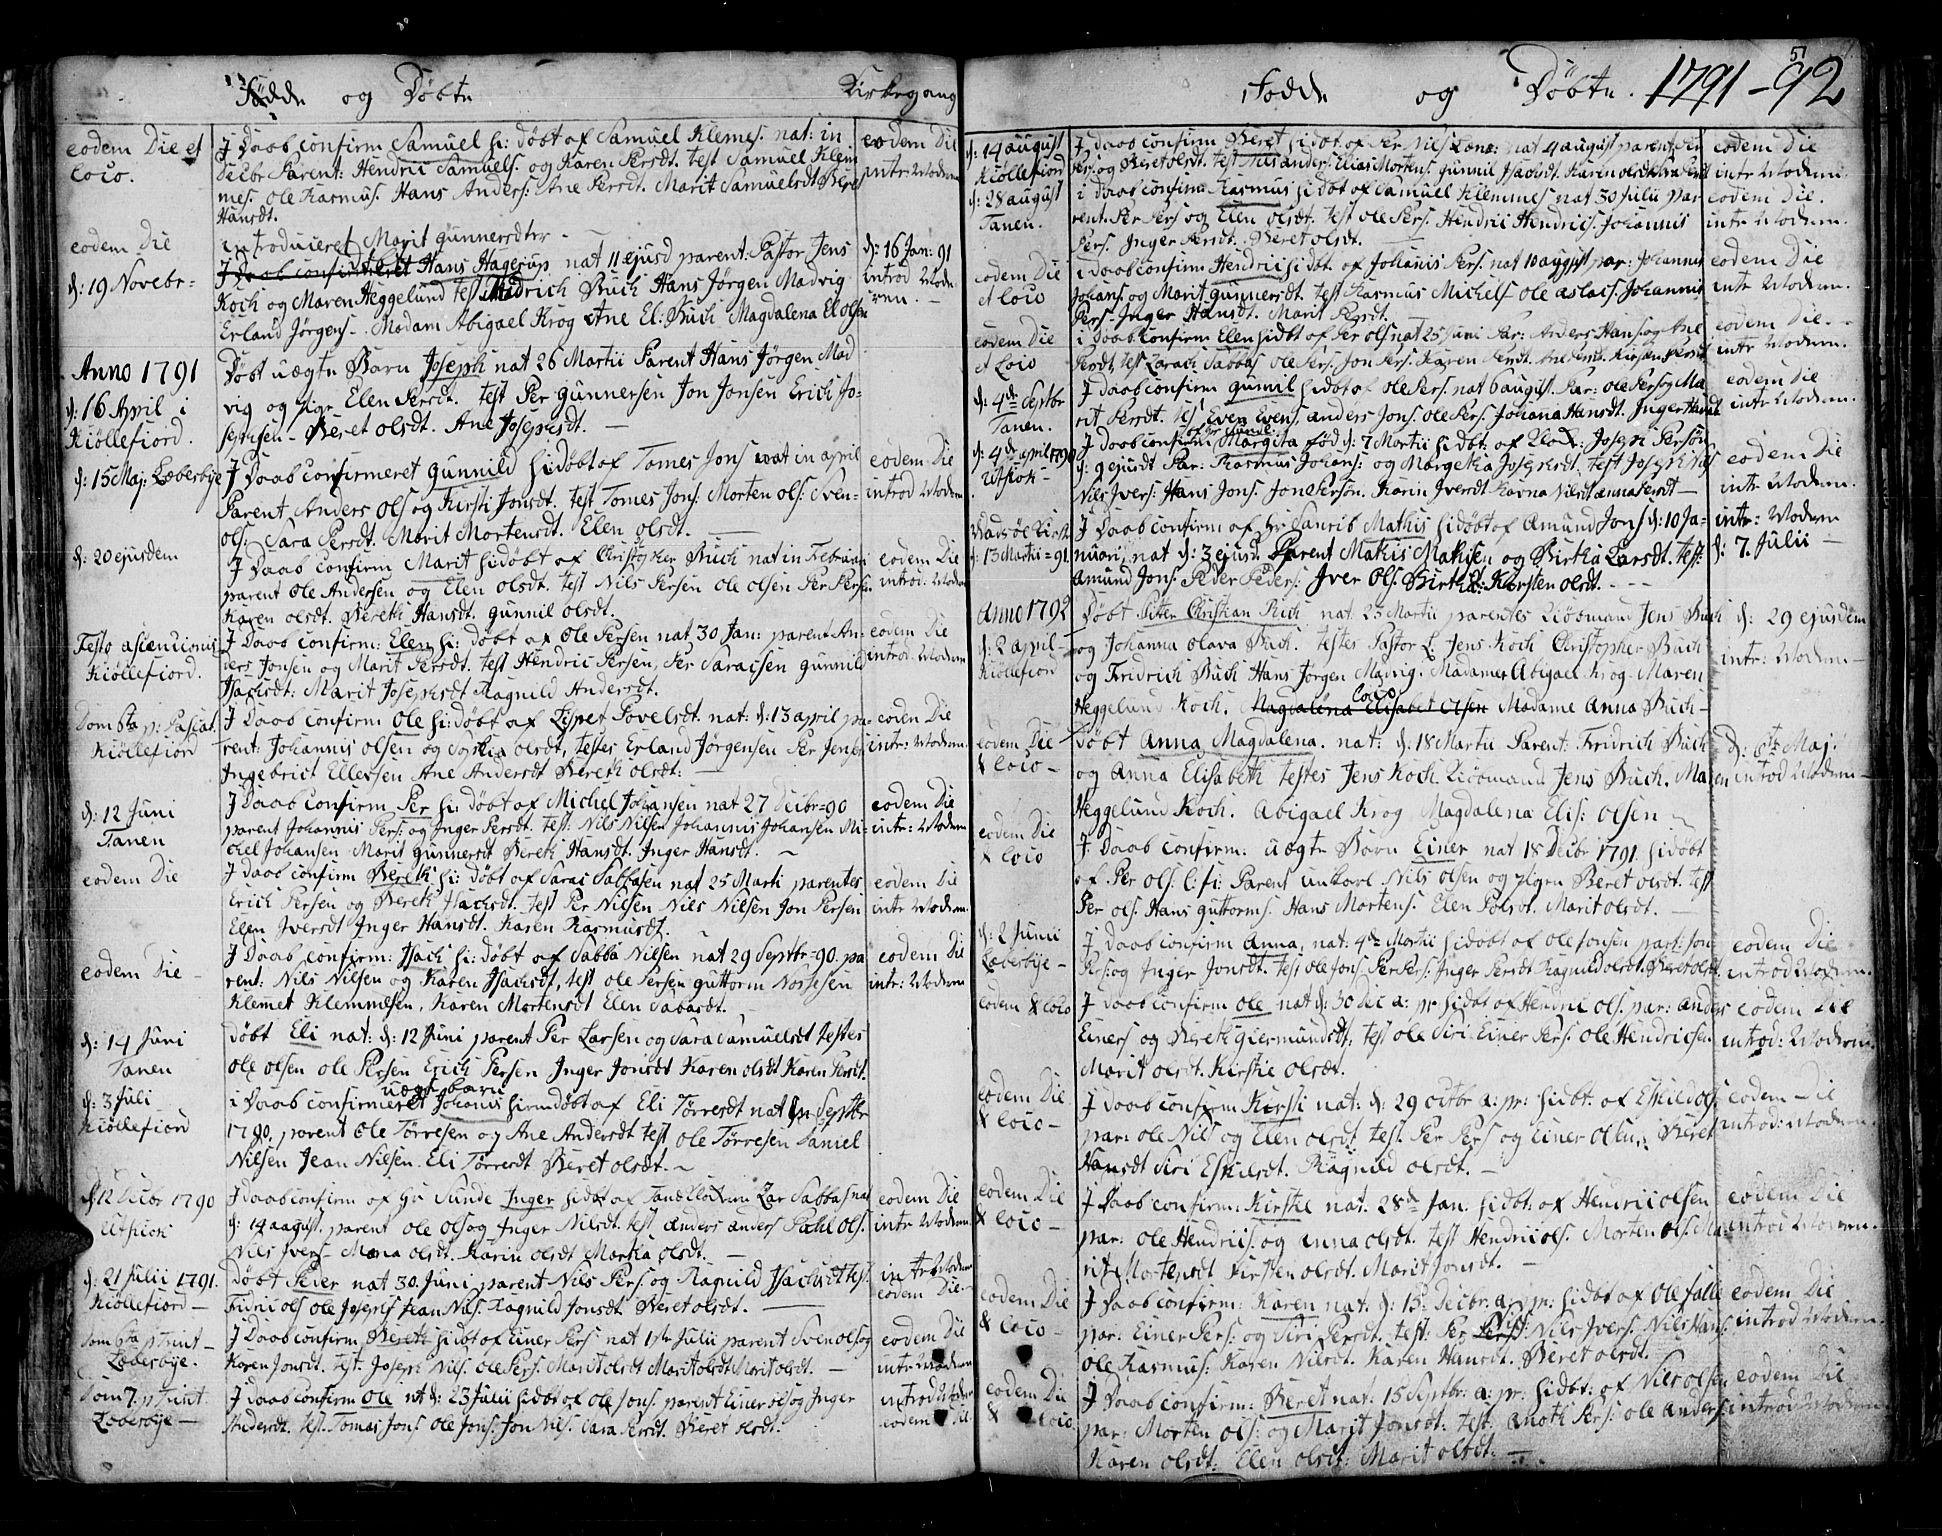 Födde og Döbte Kirkegang
eodem Die et
loco.
J Daab confirm Samuel hi: döbt af Samuel Klemes: nat: in
Decbr Parent: Hendric Samuels. og Karen Persdt. test Samuel Klem
mes. ole Rasmus. Hans Anders: Ane Persdt. Marit Samuelsdt Beret
Hansdt.
eodem Die
intr: Modern
eodem Die
introduceret Marit Gunnersdtr
d: 19 Novebr=
J Daab confirmeret Hans Hagerup nat 11 ejusd parent: Pastor Jens
Koch og Maren Heggelund test Fridrich Buch Hans Jørgen Madvig
Erland Jörgens. Madam Abigael Krog Ane El: Buch Magdalena El Olsen
d: 16 Jan: 91
introd Mode
ren.
Anno 1791
d: 16 April i
Kiöllefiord.
Döbt uægte Barn Joseph nat 26 Martii Parent Hans Jörgen Mad
vig og pige Elen Persdt. test Per Gunnersen Jon Jonsen Erich Jo-
sephsen Beret olsdt. Ane Josephsdt.
d: 15 Maj: Læberbye
J Daab confirmeret Gunnild hi döbt af Tomes Jons nat in april
Parent Anders Ols og Kirsti Jonsdt. test Tomes Jons. Morten ols: Sven
ols: Sara Persdt. Marit Mortensdt. Elen olsdt.
eodem Die
introd Modern
d: 20 ejusdem
J Daab confirm Marit hi döbt af Christopher Buch nat in Februari
parent Ole Andersen og Elen olsdt. test Nils Persen ole olsen Per Persen
Karen olsdt. Bereth Hansdt. Gunnil olsdt.
eodem Die
introd: Modern
Festo ascencionis
Kiöllefiord.
J Daab confirm: Elen hi: döbt af Ole Persen nat 30 Jan: parent An-
ders Jonsen og Marit Persdt. test Hendric Persen, Per Saraisen Gunnild
Jsachsdt: Marit Josephsdt Ragnild Andersdt.
eodem Die
introd: Modern
Dom 6ta p: Pascat.
Kiöllefiord
J Daab confirm Ole hi: döbt af Lispet Povelsdt. nat: d: 13 april pa-
rent: Johannis olsen og Sophia olsdt, testes Erland Jörgensen Per Jensen
Ingebrict Ellersen Ane Andersdt Bereth olsdt:
eoden Die
intr: Modern.
d: 12 Juni
Tanen
J Daab confirm Per hi: döbt af Michel Johansen nat 27 Decbr=90
parent Johannis Pers: og Inger Persdt. test: Nils Nilsen Johannis Johansen Mi-
chel Johansen Marit Gunnersdt Bereth Hansdt. Inger Hansdt.
eodem Die
intr: Modern
eodem Die
J daab confirm Bereth hi: döbt af Sarai Sabbasen nat 25 Marti parentes
Erich Persen og Bereth Jsachsdt. test Per Nilsen Nils Nilsen Jon Persen
Elen Jversdt Inger Hansdt. Karen Rasmusdt.
eodem Die
intr: Modern.
eodem Die
J Daab confirm: Jsach hi: döbt af Sabba Nilsen nat 29 Septbr-90. pa
rent: Nils Nilsen og Karen Jsachsdt, test ole Persen Guttorm Noresen
Klemet Klemmesen, Karen Mortensdt Elen Sabasdt.
eodem Die
intr: Modern
d: 14 Juni
Tanen
döbt Eli nat: d: 12 Juni parent Per Larsen og Sara Samuelsdt testes
Ole olsen ole Persen Erich Persen Inger Jonsdt Karen olsdt Karen Persdt.
d: 3 Juli
Kiöllefiord
uægte barn
i Daab confirmeret Johanis hiemdöbt af Eli Törresdt nat in Septbr
1790. parent Ole Törresen og Ane Andersdt test Ole Törresen Daniel
Nilsen Jean Nilsen Eli Törresdt. Beret olsdt.
d 12 Decbr 1790
Utskiok
J daab confirm af Hr Sunde Inger hi döbt af Lar Sabbas nat
d: 14 august. parent ole ols og Inger Nilsdt. test anders anders Pahl ols.
Nils Jvers Mona olsdt. Karin olsdt Martha olsdt.
eodem Die
intr Modern.
d: 21 Julii 1791.
Kiöllefiord
Döbt Peder nat 30 Juni parent Nils Pers og Ragnild Jsachsdt test.
Fridric ols ole Josephs Jean Nils. Ragnild Jonsdt. Beret olsdt.
intr Modern
eodem Die.
Dom 6ta p trint
Læberbye.
J Daab confirm Bereth hi döbt af Einer Pers nat 1ste Julii parent Sven ols og
Karen Jonsdt. test. Joseph Nils. ole Pers. Marit olsdt Marit olsdt Marit olsdt.
eodem Die
intr Modern
Dom 7. p trint
Læberbye
J daab confirm Ole nat d: 23 Julii hi döbt af Ole Jons. parent Einer ols og Inger
Andersdt. test. Tomas Jons Ole Jons. Jon Nils. Sara Persdt. Beret olsdt.
introd Modern
eodem Die
51
Födde og Döbte. 1791-92
d: 14 august
Kiöllefiord
J Daab confirm Beret hi döbt af Per Nils Læna: nat 4 august parent Per
Pers: og Beret olsdt. test Nils anders: Elias Mortens Gunnil Jsachsdt. Karen olsdt
eodem Die
intr Modern.
d: 28 august
Tanen.
i daab confirm Rasmus hi döbt af Samuel Klemmes nat 30 Julii Pa-
rent. Per Pers og Elen olsdt. test ole Pers. Hendric Hendrics. Johannis
Pers. Inger Persdt. Beret olsdt.
eodem Die.
intr Modern.
eodem Die
et Loco
i daab confirm Hendric hi döbt. af Johanis Pers. nat 10 august par: Johannis
Johans: og Marit Gunnersdt. test Rasmus Michels ole aslacs Johannis
Pers. Inger Hansdt. Marit Persdt.
eodem Die
intr Modern.
eodem Die
et Loco
i Daab confirm Elen hi döbt af Per ols nat 25 Juni Par: Anders Hans: og Ane
Persdt, test Zarach Sabbas Ole Pers. Jon Pers. Karen Persdt. Ane Persdt. Kirsten Persdt
eodem Die.
intr Modern.
d: 4de Septbr
Tanen.
J Daab confirm Gunnil hi döbt af ole Pers. nat 6 august. Par: ole Pers og Ma
rit Persdt. test Even Evens, anders Jons. ole Pers. Johana Hansdt. Inger Hansdt
eodem Die
intr Modern.
d: 4de april 1790
Utskok
af Hr Sunde
J Daab confirm Margita föd d: 7 Martii hi döbt. af Josep Persön
d: 9 ejusdt Par: Rasmus Johans: og Margetha Josephsdt. test Joseph Nils
Nils Jvers: Hans Jons. Jon Persön. Karin Jversdt Ravna Nilsdt anna Persdt
eodem Die
intr: Modern.
Wadsöe Kirke
d: 13 Martii=91.
J Daab confirm af Hr Sanrib Mathis hi döbt af Amund Jons d: 10 Ja-
nuari, nat d: 3 ejusd. Parent Mathis Mathisen og Birtha Larsdt. test:
Amund Jons: Peder Peders: Jver Ols: Birtha: Kirsten olsdt.
intr: Modern
d: 7. Julii
Anno 1792
d: 2 april
Kiöllefior
Döbt Peter Christian Rich nat 25 Martii parentes Kiöbmand Jens Buch
og Johanna Olava Buch. testes Pastor L. Jens Koch Christopher Buch
og Fridrich Buch Hans Jörgen Madvig. Madamer Abigael Krog Maren
Heggelund Koch. Magdalena Elisabet Olsen Loco Madame Anna Buch
d: 29 ejusdem
intr: Modern
eodem Die
& Loco
Döbt Anna Magdalena. nat: d: 18 Martii Parent: Fridrich Buch
og Anna Elisabeth testes Jens Koch Kiöbmand Jens Buch. Maren
Heggelund Koch. Abigael Krog Magdalena Elis: Olsen
d: 6te Maj
introd Modern
eodem Die
& Loco
J Daab confirm: uægte Barn Einer nat 18 Decbr 1791. hi döbt
af Per ols: Parent unkarl Nils Olsen og pigen Beret olsdt. test
Per ols. Hans Guttorms. Hans Mortens. Elen Polsdt. Marit olsdt.
d: 2 Junii
Læberbye
J daab confirm Anna, nat: 4de Martii hi döbt af Ole Jonsen part: Jon
Pers: og Inger Jonsdt. test Ole Jons. Per Pers. Inger Persdt Ragnild olsdt. Beret olsdt
eodem Die
introd Modern.
eodem & Loco
J daab confirm Ole nat d: 30 dec a: pr hi döbt af Hendric ols. par: anders
Einers og Bereth Giermundsdt, test ole Siri Einer Pers: Ole Hendricsen
Marit olsdt. Kirstie olsdt.
eodem Die
introd: Modern.
eodem Die
& Loco
J daab confirm Kirsti nat: d: 29 octbr a: pr: hi döbt. af Eskild ols
par: ole Nils og Elen olsdt test. Per Pers og Einer Olsen: Beret
Hansdt Siri Eskilsdt. Ragnild olsdt.
eodem Die
introd: Modern.
eodem Die
& Loco
J Daab confirm: Kirstie nat. 28de Jan. hi döbt. af Hendric olsen
par: ole Hendrics. og Anna olsdt. test Hendric ols. Morten ols. Ma-
rit Mortensdt Kirsten olsdt. Marit Jonsdt.
eodem Die
introd Modern.
eodem Die
& Loco
J Daab confirm: Karen nat. d: 15 Decbr. a: pr: hi döbt af Ole falle
par: Einer Pers: og Siri Persdt. test: Per Pers: Nils Jvers. Nils Hans:
ole Rasmus: Karen Nilsdt. Karen Hansdt. Beret olsdt.
eodem Die
introd Modern.
eodem Die
& Loco
J Daab confirm: Beret nat: 15 Septbr: a: pr: hi döbt: af Nils Olsen
par: Morten ols: og Marit Jonsdt: test: Anoth Pers: ole Anders:
Karen olsdt: Elen olsdt: Marit olsdt.
eodem Die
introd Modern.